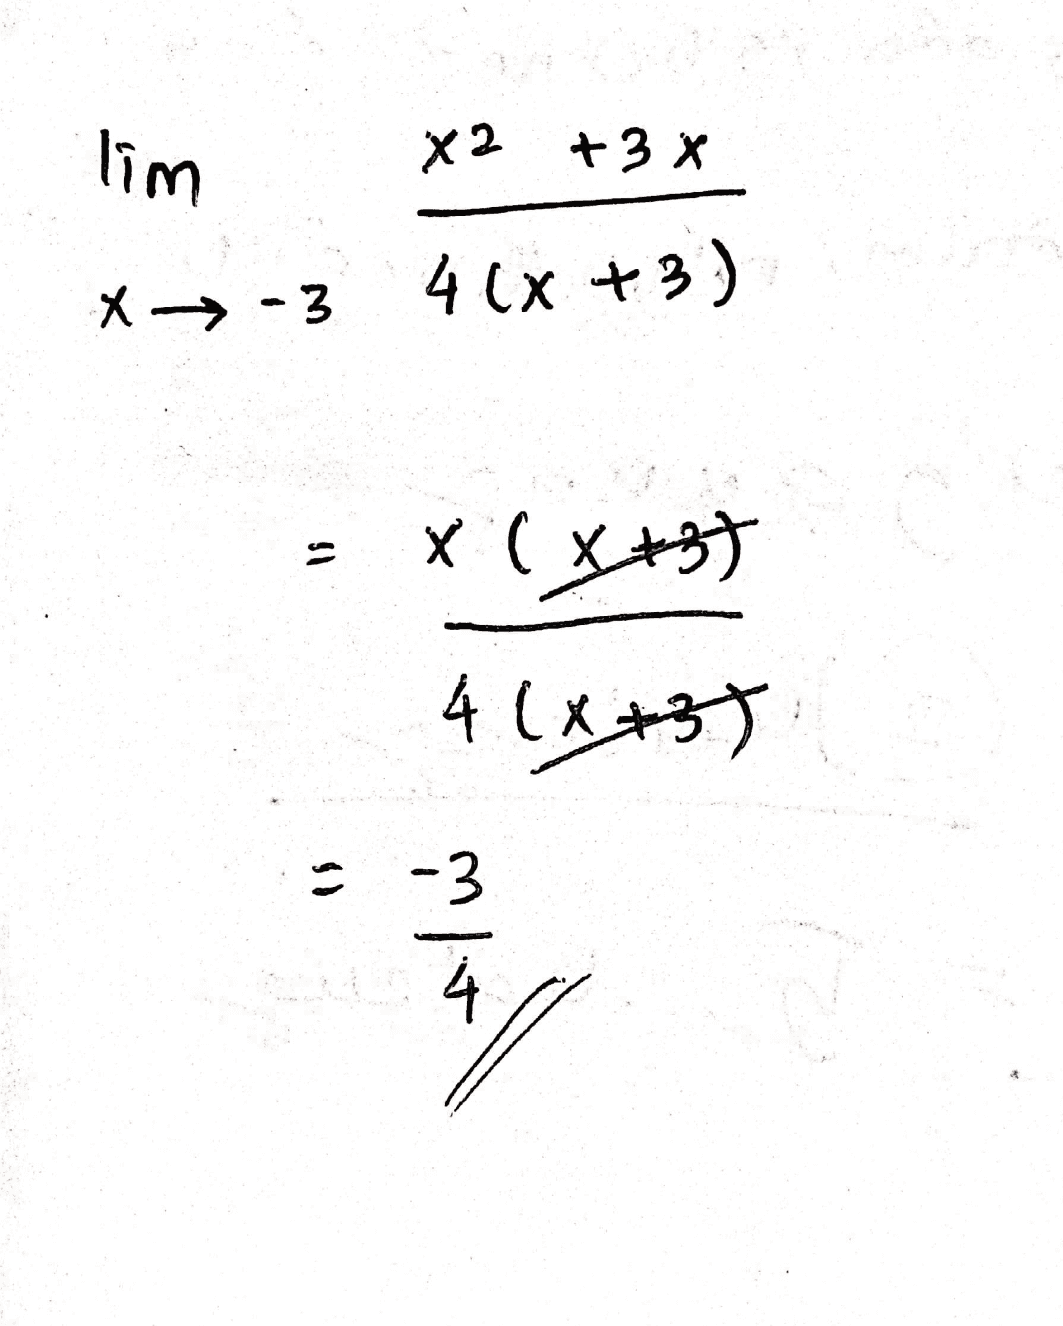 lim x2 +3x
x → -3 4(x +3)
= x (x+3)
4 (x+3)
= -3
4